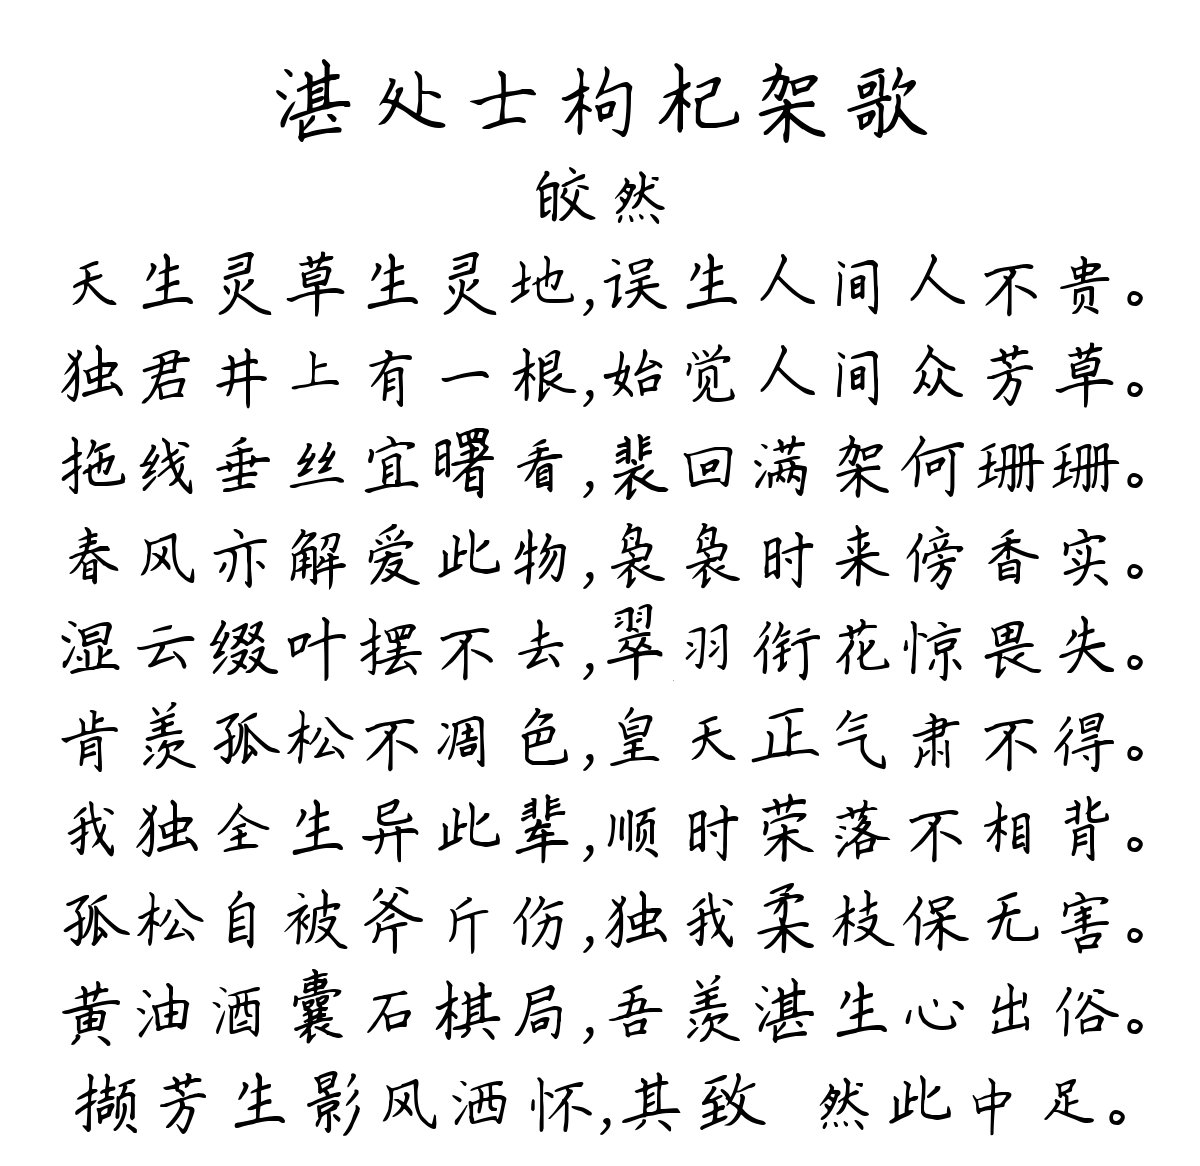 湛处士枸杞架歌
皎然
天生灵草生灵地,误生人间人不贵。
独君井上有一根,始觉人间众芳草。
拖线垂丝宜曙看,裴回满架何珊珊。
春风亦解爱此物,袅袅时来傍香实。
湿云缀叶摆不去,翠羽衔花惊畏失。
肯羡孤松不凋色,皇天正气肃不得。
我独全生异此辈,顺时荣落不相背。
孤松自被斧斤伤,独我柔枝保无害。
黄油酒囊石棋局,吾羡湛生心出俗。
撷芳生影风洒怀,其致 然此中足。